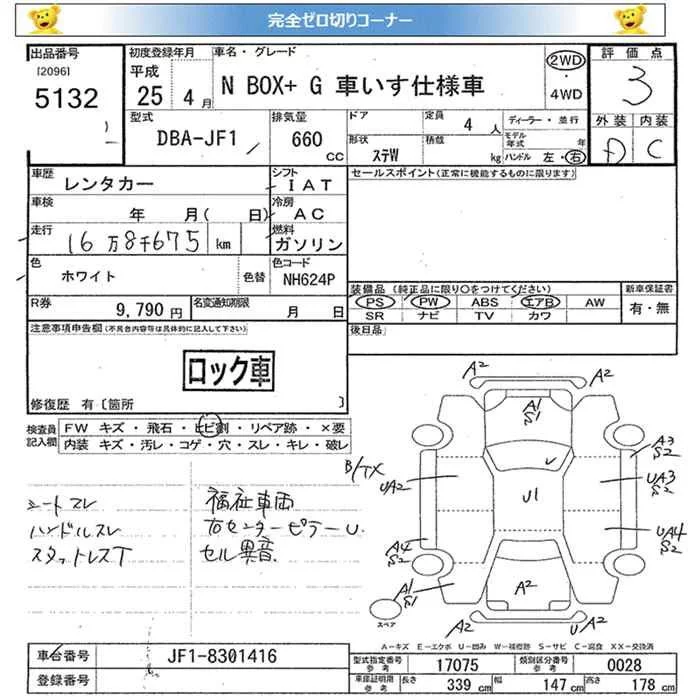 完全ゼロ切りコーナー
出品番号
[2096]
5132
初度登録年月
平成
25 4 月
車名・グレード
N BOX+ G 車いす仕様車
2WD
・
4WD
評価点
3
外装 内装
D C
型式
DBA-JF1
排気量
660
CC
ドア
定員
4 人
ディーラー・並行
モデル
年式 年
形状
ステW
積載
kg
ハンドル 左・右
車歴
レンタカー
シフト
IAT
車検
年 月( 日)
冷房
AC
走行
16万8千675 km
燃料
ガソリン
色
ホワイト
色替
色コード
NH624P
R券
9,790 円
名変通知期限
月 日
セールスポイント(正常に機能するものに限ります)
装備品(純正品に限り○をつけてください)
PS PW ABS エアB AW
SR ナビ TV カワ
新車保証書
有・無
後日品
注意事項申告欄(不具合内容等は具体的に記入して下さい)
ロック車
修復歴 有〔箇所 〕
検査員
記入欄
FW キズ・飛石・ヒビ割・リペア跡・×要
内装 キズ・汚レ・コゲ・穴・スレ・キレ・破レ
シートスレ
ハンドルスレ
スタットレスT
福祉車両
右センターピラーU.
セル異音
A2
A2
A1
S1
A3
S2
B/TX
UA2
U1
UA3
S2
A4
S2
UA4
S2
A1
S1
A2
スペア
A2
U
A2
A-キズ E-エクボ U-凹み W-補修跡 S-サビ C-腐食 XX-交換済
車台番号
JF1-8301416
登録番号
型式指定番号
参考
17075
類別区分番号
参考
0028
車庫証明用
参考
長さ
339 cm
幅
147 cm
高さ
178 cm